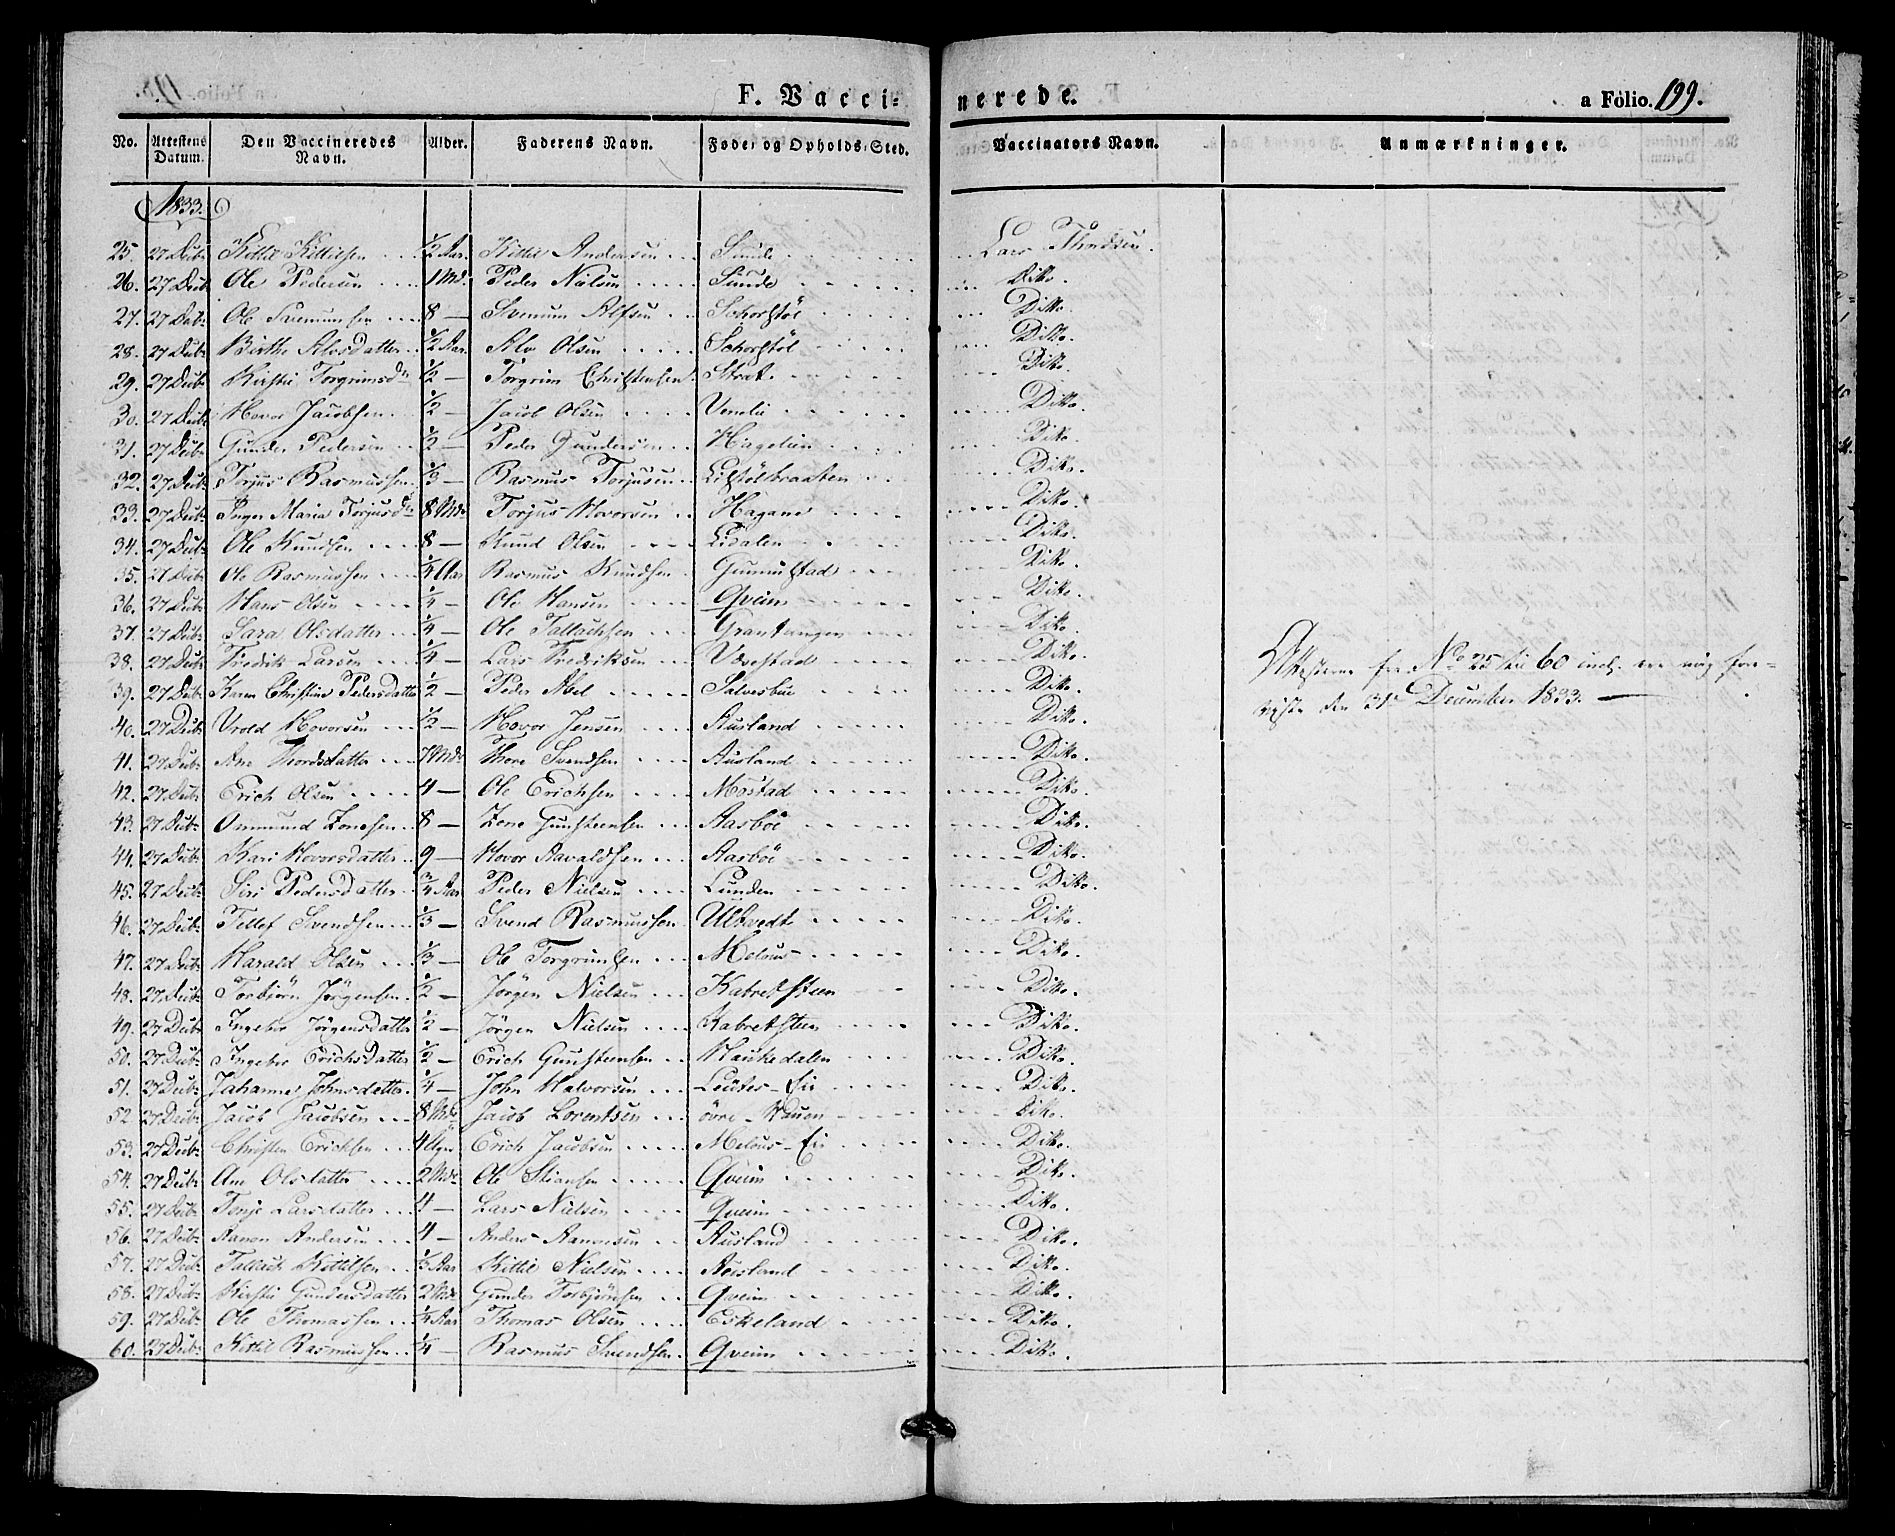 F. Vacci-nerede. a Folio. 199.
No. Attestens Datum. Den Vaccineredes Navn. Alder. Faderens Navn. Føde- og Opholds-Sted. Vaccinators Navn. Anmærkninger.
1833.
25. 27 Decbr Kittil Kittilsen 1/2 Aar. Kittil Andersen Sunde Lars
26. 27 Decbr Ole Pedersen 1 Md. Peder Nielsen Sunde Ditto.
27. 27 Decbr Ole 8 — Alfsen Ditto.
28. 27 Decbr Birthe Alvsdatter 1/2 Aar Alv Olsen Ditto.
29. 27 Decbr Kirsti Torgrimsdr 1/2 — Torgrim Christensen Strat Ditto.
30. 27 Decbr Hovor Jacobsen 1/2 — Jacob Olsen Ditto.
31. 27 Decbr Gunder Pedersen 1/2 — Peder Gundersen Ditto.
32. 27 Decbr Torjus Rasmussen 1/3 — Rasmus Torjusen Ditto.
33. 27 Decbr Inger Maria Torjusdr 8 Mdr Torjus Hovorsen Hagane Ditto.
34. 27 Decbr Ole Knudsen 8 — Knud Olsen Lidalen Ditto.
35. 27 Decbr Ole Rasmussen 1/4 Aar Rasmus Knudsen Ditto.
36. 27 Decbr Hans Olsen 1/4 — Ole Hansen Qveim Ditto.
37. 27 Decbr Sara Olsdatter 1/4 — Ole Tallachsen Ditto.
38. 27 Decbr Fredrik Larsen 1/4 — Lars Fredriksen Ditto.
39. 27 Decbr Karen Christine Pedersdatter 1/2 — Peder Abel Ditto.
40. 27 Decbr Vrold Hovorsen 1/2 — Hovor Jensen Ausland Ditto.
41. 27 Decbr Ane Thordsdatter 7 Mdr Svendsen Ausland Ditto.
42. 27 Decbr Erich Olsen 4 — Ole Erichsen Mostad Ditto.
43. 27 Decbr Ommund Zonesen 8 — Zone Gunsteensen Aasböe Ditto.
44. 27 Decbr Kari Hovorsdatter 9 — Hovor Aavaldsen Aasböe Ditto.
45. 27 Decbr Siri Pedersdatter 3/4 Aar Peder Nielsen Lunden Ditto.
46. 27 Decbr Tellef Svendsen 1/3 — Svend Rasmussen Ulltvedt Ditto.
47. 27 Decbr Harald Olsen 1/3 — Ole Torgrimsen Meløus Ditto.
48. 27 Decbr Torbiörn Jörgensen 1/2 — Jörgen Nielsen Ditto.
49. 27 Decbr Ingebor Jörgensdatter 1/2 — Jörgen Nielsen Ditto.
50. 27 Decbr Ingebor Erichsdatter 1/2 — Erich Gunsteensen Haukedalen Ditto.
51. 27 Decbr Johanne Johnsdatter 1/4 — John Halvorsen Ditto.
52. 27 Decbr Jacob Jacobsen 8 Mdr Jacob Lorentsen övre Ditto.
53. 27 Decbr Christen Erichsen 4 Uger Erich Jacobsen Meløus-Eie Ditto.
54. 27 Decbr Ane Olsdatter 2 Mdr Ole Stiansen Qveim Ditto.
55. 27 Decbr Tonje Larsdatter 4 — Lars Nielsen Qveim Ditto.
56. 27 Decbr Aanon Andersen 4 — Anders Aanonsen Ausland Ditto.
57. 27 Decbr Tallach Kittilsen Aar Kittil Nielsen Ausland Ditto.
58. 27 Decbr Kirsti Gundersdatter 2 Mdr Gunder Torbjörnsen Qveim Ditto.
59. 27 Decbr Ole Thomassen 1/4 Aar Thomas Olsen Eskeland Ditto.
60. 27 Decbr Kittil Rasmussen 1/4 Rasmus Svendsen Qveim Ditto.
Attesterne fra No 25 til 60 incl. ere mig fore-
viiste den 31te December 1833. —